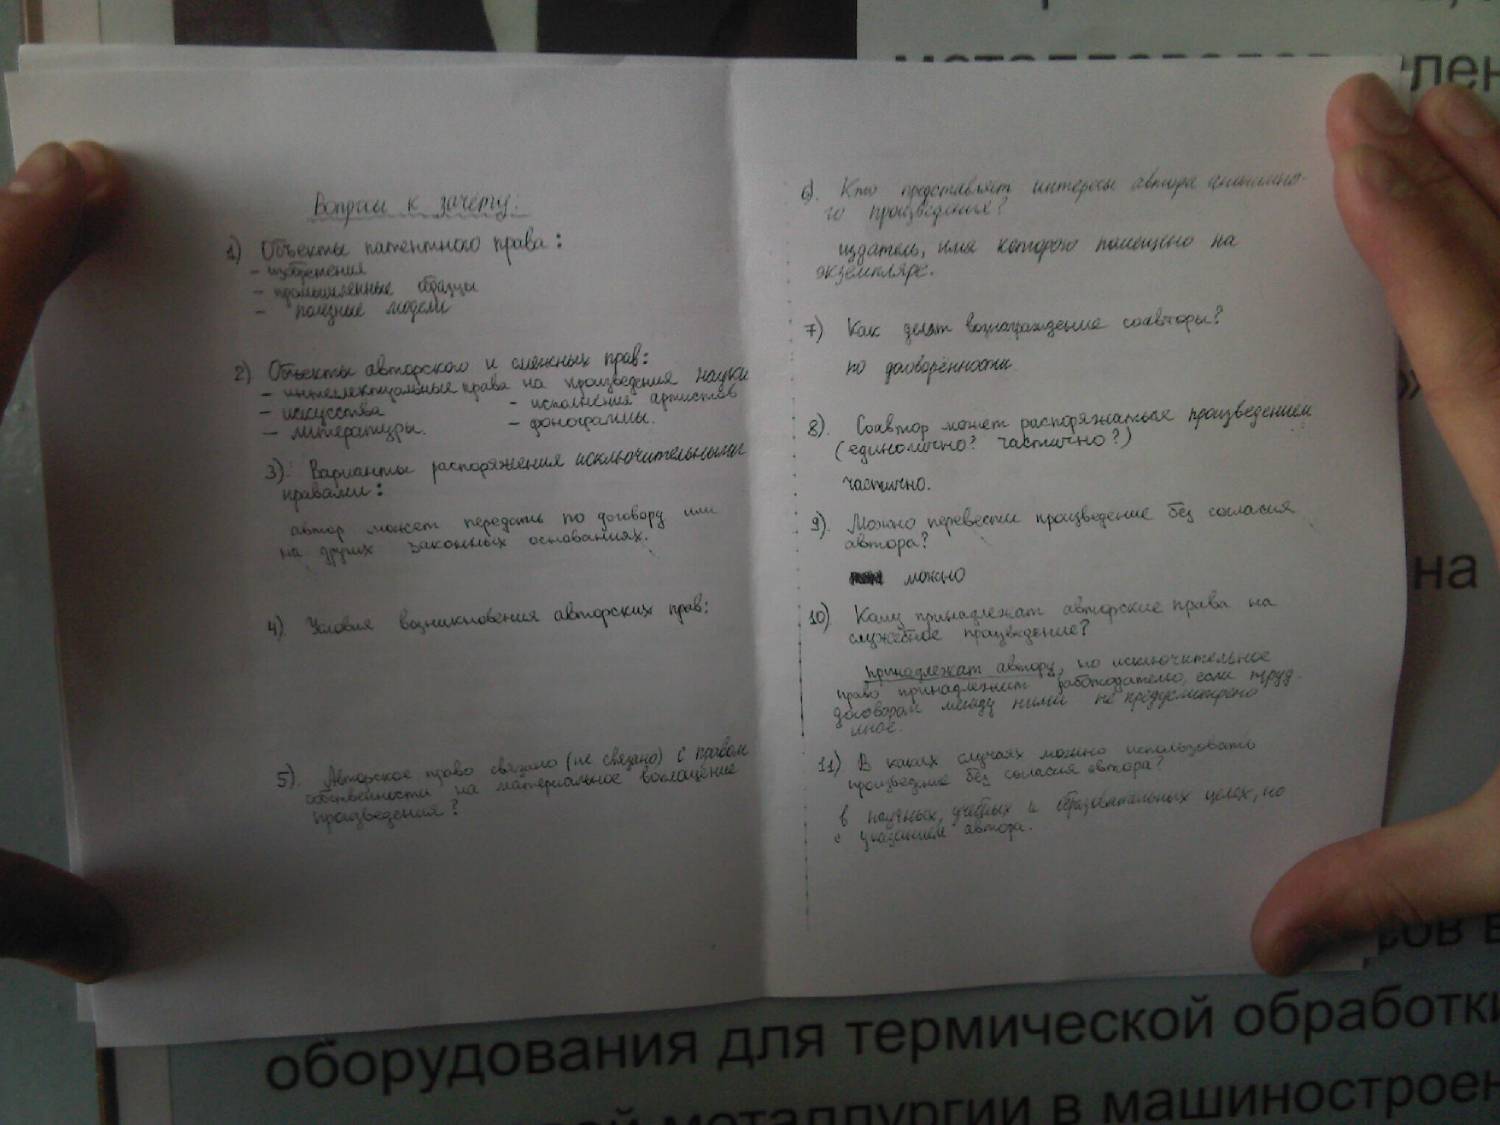 Вопросы к зачёту:
1) Объекты патентного права:
- изобретения
- промышленные образцы
- полезные модели
2) Объекты авторского и смежных прав:
- интеллектуальные права на произведения науки
- искусства - исполнения артистов
- литературы. - фонограммы.
3). Варианты распоряжения исключительными
правами:
автор может передать по договору или
на других законных основаниях.
4) Условия возникновения авторских прав:
5). Авторское право связано (не связано) с правом
собственности на материальное воплощение
произведения?
6). Кто представляет интересы автора анонимно-
го произведения?
издатель, имя которого помещено на
экземпляре.
7) Как делят вознаграждение соавторы?
по договорённости
8). Соавтор может распоряжаться произведением
(единолично? частично?)
частично.
9). Можно перевести произведение без согласия
автора?
можно
10). Кому принадлежат авторские права на
служебное произведение?
принадлежат автору, но исключительное
право принадлежит работодателю, если труд.
договором между ними не предусмотрено
иное.
11) В каких случаях можно использовать
произведение без согласия автора?
в научных, учебных и образовательных целях, но
с указанием автора.
лен
на
ов в
оборудования для термической обработки
металлургии в машиностроен